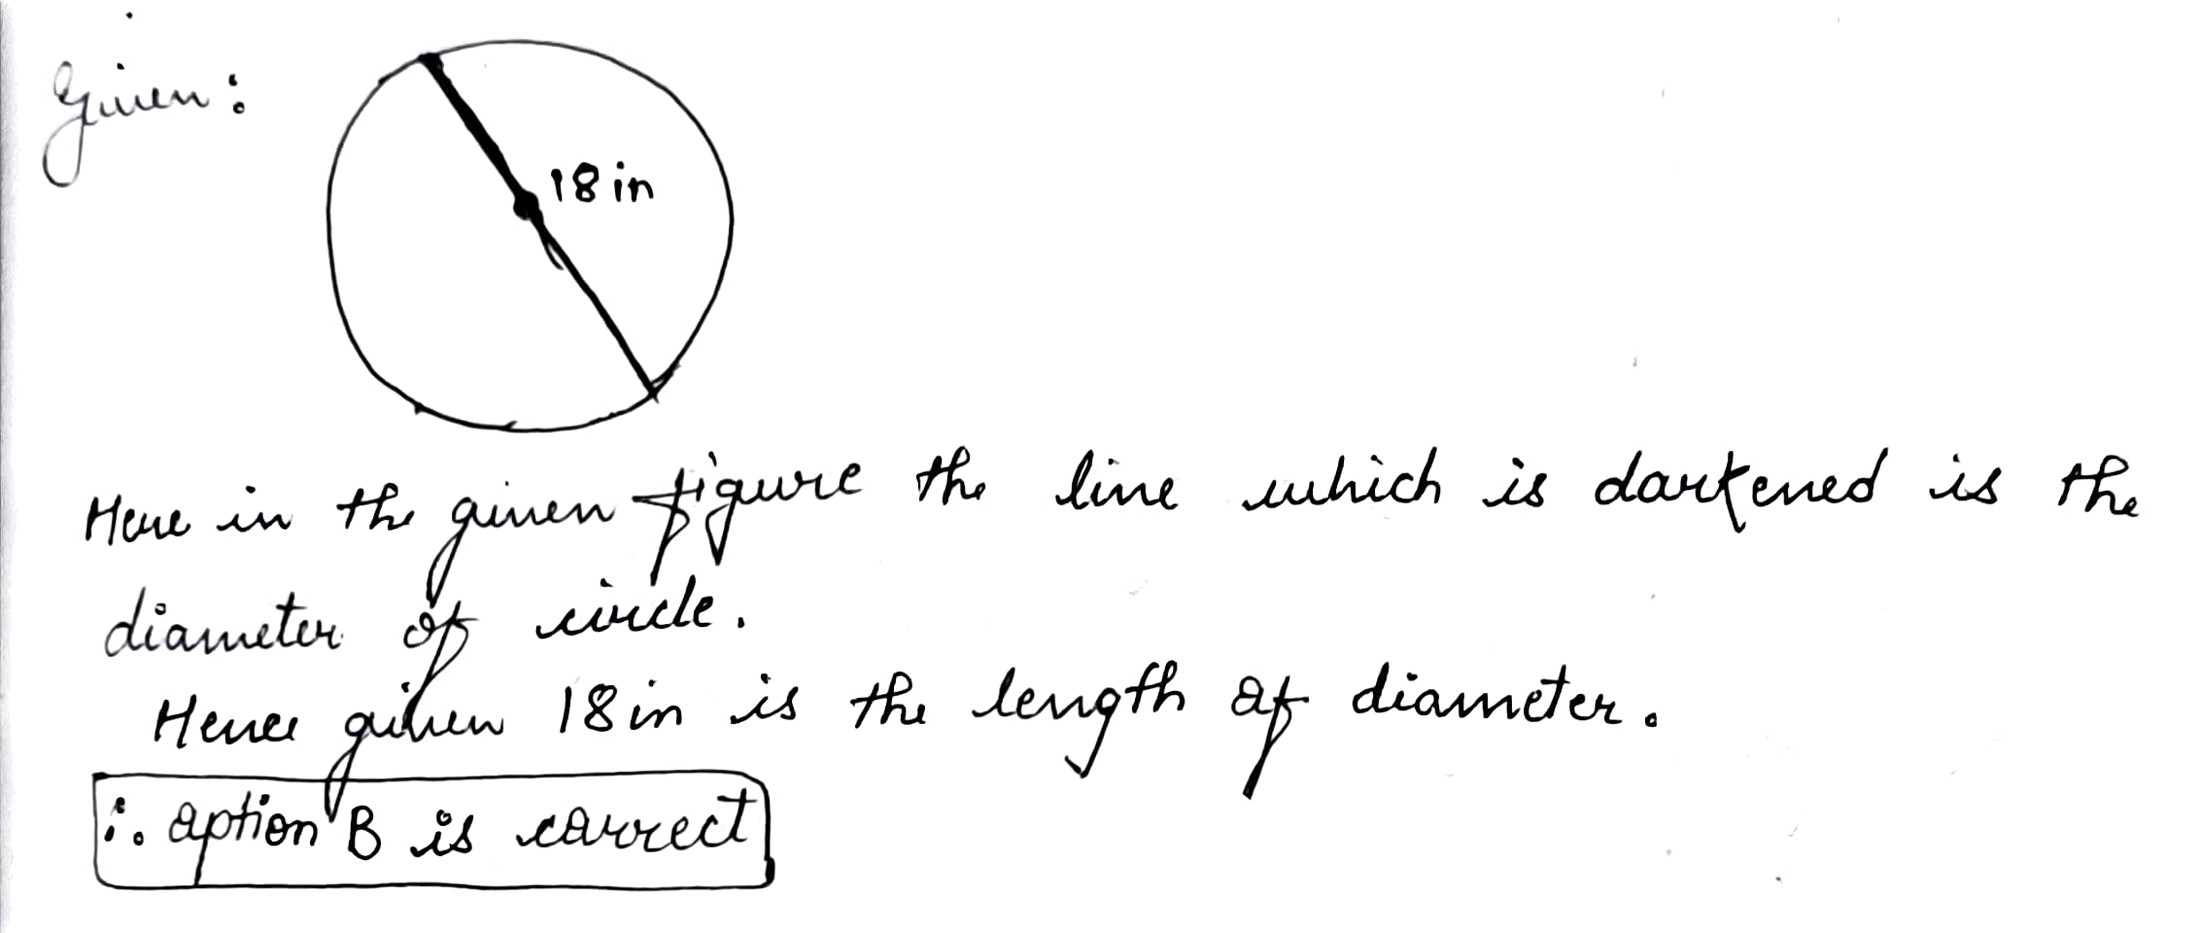 Given:
18 in
Here in the given figure the line which is darkened is the
diameter of circle.
Hence given 18 in is the length of diameter.
∴ option B is correct